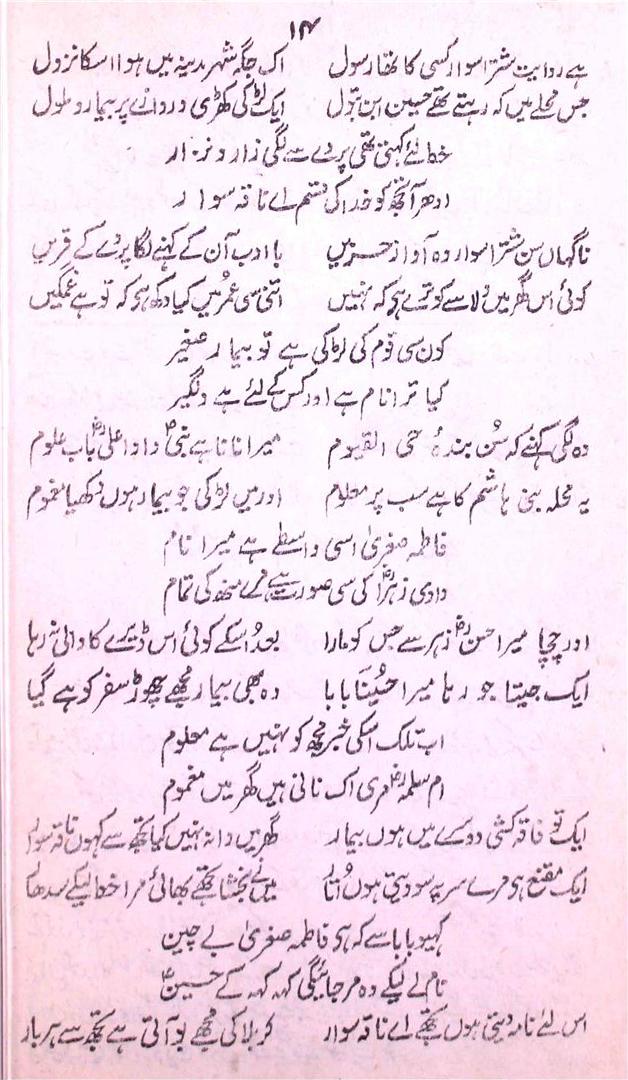 ۱۴
ہے روایت شتر اسوار کسی کا تھا رسول اک جگہ شہر مدینہ میں ہوا اسکا نزول
جس محلے میں کہ رہتے تھے حسین ابن بتول ایک لڑکی کھڑی دروازے پر بیمار و ملول
خط لئے کہتی تھی پردے سے لگی زار و نزار
ادھر آ تجھ کو خدا کی قسم اے ناقہ سوار
ناگہاں سن شتر اسوار وہ آواز حزیں با ادب آن کے کہنے لگا پردے کے قریں
کوئی اس گھر میں دلاسے کو ترے ہی کہ نہیں اتنی سی عمر میں کیا دکھ ہی کہ تو ہے غمگیں
کون سی قوم کی لڑکی ہے تو بیمار صغیر
کیا ترا نام ہے اور کس کے لئے ہے دلگیر
وہ لگی کہنے کہ سن بندۂ حی القیوم میرا نانا ہے نبیؐ دادا علیؓ باب علوم
یہ محلہ بنی ہاشم کا ہے سب پر معلوم اور میں لڑکی جو بیمار ہوں دکھیا مغموم
فاطمہ صغریٰ اسی واسطے ہے میرا نام
دادی زہراؓ کی سی صورت ہے مرے منھ کی تمام
اور چچا میرا حسنؓ زہر سے جس کو مارا بعد اسکے کوئی اس ڈیرے کا والی نہ رہا
ایک جیتا جو رہا میرا حسینا بابا وہ بھی بیمار مجھے چھوڑ سفر کو ہے گیا
اب تلک اسکی خبر مجھ کو نہیں ہے معلوم
ام سلمہؓ مری اک نانی ہیں گھر میں مغموم
ایک تو فاقہ کشی دوسے میں ہوں بیمار گھر میں دانہ نہیں کیا تجھ سے کہوں ناقہ سوار
ایک مقنع ہی مرے سر پہ سو دیتی ہوں اتار میں نے بخشا تجھے بھائی مرا خط لیکے سدھار
کہیو بابا سے کہ ہی فاطمہ صغریٰ بے چین
نام لے لیکے وہ مر جائیگی کہہ کہہ کے حسینؑ
اس لئے نامہ دیتی ہوں تجھے اے ناقہ سوار کربلا کی مجھے بو آتی ہے تجھ سے ہر بار